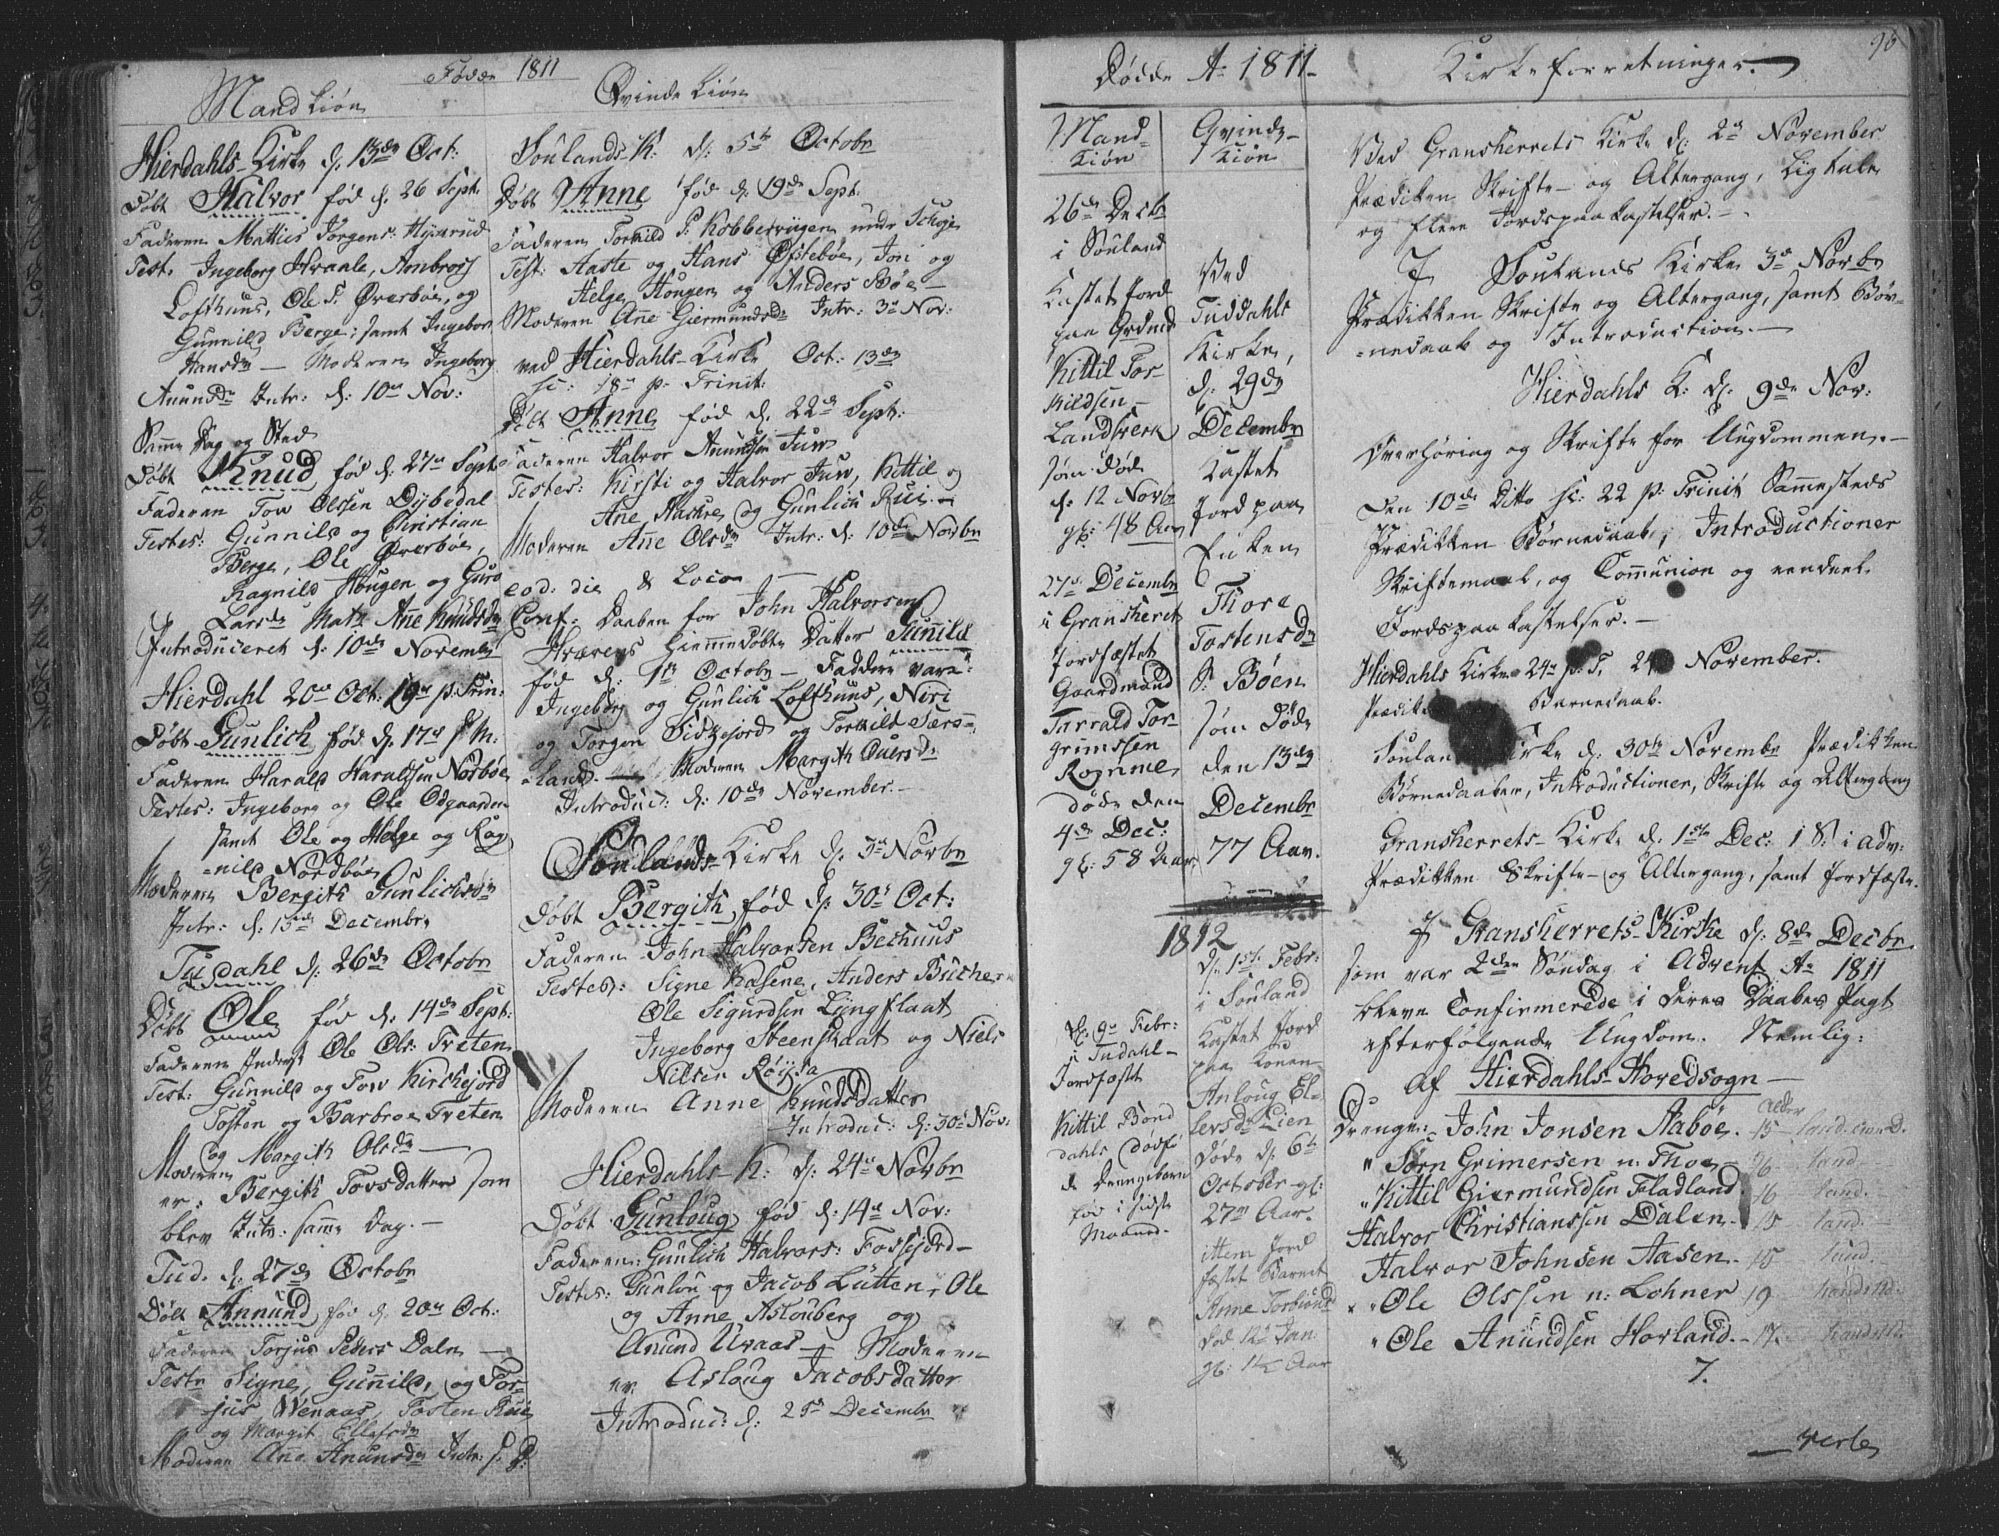 Fødde 1811
Mand Kiøn
Hierdahls Kirke d. 13de Oct:
Døbt Halvor fød d. 26 Sept.
Faderen Mathies Jørgens.
Test. Ingeborg Hvaale, Ambros
Lofthuus, Ole T. Øverbøe, og
Gunnild Berge; samt Ingebor
Hansdr — Moderen Ingeborg
Anundsdr Intr: d: 10de Nov:
Samme Dag og Sted
Døbt Knud fød d. 27de Sept:
Faderen Tov Olsen Dybedal
Testes: Gunnild og Christian
Berge, Ole Øverbøe,
Ragnild Hougen og Guro
Larsdr Matr Anne Knudsdr
Introduceret d. 10de November
Hierdahl 20de Oct: 19de p. Trin:
Døbt Gunlich fød d. 17de s. M:
Faderen Harald Haraldsen Norbøe
Testes: Ingeborg og Ole Odgaarden
samt Ole og Helge og Rag
nild Nordbøe
Moderen Bergith Gunlichsdr
Intr: d: 15de Decembr.
Tudahl d: 26de Octobr
Døbt Ole fød d. 14de Sept:
Faderen Inderst Ole Ols: Treten
Test: Gunnild og Tow Kirchejord
Tosten og Barbroe Treten
og Margith Olsdr —
Moderen
er Bergith Tovsdatter som
blev Intr. samme Dag. —
Tud. d. 27de Octobr
Døbt Annund fød d. 20de Oct:
Faderen Torjus Peders Dale —
Testr Signe, Gunnild, og Tor-
jus Wenaas, Tosten Rui
og Margit Ellefsdr
Moderen Anne Anunsdr Intr: s. D:
Qvinde Kiøn
Soulands K: d: 5te Octobr
Døbt Anne fød d. 19de Sept:
Faderen Torkild P. Kobbervigen under Skoje
Test: Aaste og Hans Øfstebøe, Joni og
Helge Hougen og Anders Bøe —
Moderen Ane Giermundsdr Intr: 3de Nov:
ved Hierdahls Kirke Oct: 13de
sc: 18de p. Trinit:
Døbt Anne fød d. 22de Sept:
Faderen Halvor Anundsen Juv
Testes: Kirsti og Halvor Juv, Kittil og
Ane Hachre og Gunlich Rui. —
Moderen Anne Olsdr Intr: d: 10de Novbr
eod: die & Loco —
Conf: Daaben for John Halvorsen
Hværens hiemmedøbte Datter Gunild
fød d: 1te Octobr — Faddere vare:
Ingeborg og Gunlich Lofthuus, Neri
og Torgon Sidsejord og Torkild Sørs-
land. — Moderen Margith Ouersdr
Introduc: d: 10de November. —
Soulands Kirke d. 3de Novbr
Døbt Bergith fød d: 30te Oct:
Faderen John Halvorsen Bechuus
Testes: Signe Kasene, Anders Bucher
Ole Sigurdsen Lyngflaat
Ingeborg Steenskaat og Niels
Nilsen Røysa
Moderen Anne Knudsdatter
Introduc: d: 30te Nov:
Hierdahls K: d: 24de Novbr
Døbt Gunloug fød d: 14de Nov:
Faderen: Gunlich Halvors: Fossejord —
Testes: Gunlou og Jacob Lutten, Ole
og Anne Aslouberg og
Anund Uraas — Moderen
er Asloug Jacobsdatter
Introduc: d: 25de Decembr
Dødde Ao 1811 —
Mand-
Kiøn
26de Decbr
i Souland
Kastet Jord
paa
Kittil Tor-
kildsen
Landsverk
som døde
d. 12 Novbr
gl: 48 Aar
27de Decembr
i Gransherret
Jordfæstet
Gaardmand
Tarrald Tor-
grimssen
Rominnen
døde den
4de Dec:
gl: 58 Aar
1812
d. 9de Febr:
i Tudahl
Jordfæstt
Kittil Bond
dahls dødfø
de Drengebarn
fød i sidste
Maaned.
Qvinde-
Kiøn
Ved
Tuddahls
Kirke,
d. 29de
Decembr
Kastet
Jord paa
Enken
Thore
Tostensdr
S. Bøen
som døde
den 13de
Decembr
77 Aar.
d. 1ste Febr:
i Souland
Kastet Jord
paa Konen
Anloug El-
lefsdr Lien
døde d. 6te
October gl:
27 Aar.
ittem Jord
fæstet Barnet
Anne Torbiørnd
død 12te Jan:
gl: 1½ Aar
Kirkeforretninger. 96
Ved Gransherrets Kirke d: 2de November
Prædiken Skrifte- og Altergang, Ligtale
og flere Jordspaakastelser. —
I Soulands Kirke 3de Novbr
Prædikken Skrifte og Altergang, samt Bør-
nedaab og Introduction. —
Hierdahls K: d: 9de Nov:
Overhøring og Skrifte for Ungdommen. —
Den 10de Ditto sc: 22 p: Trinit Sammesteds
Prædikken Børnedaab, Introductioner
Skriftemaal, og Communion og
Jordspaakastelser. —
Hierdahls Kirke 24de p: T. 24 November.
Prædik Barnedaab.
Soulan irke d. 30te Novembr Prædikken
Børnedaaben, Introductioner, Skrifte og Altergang
Gransherrets Kirke d. 1ste Dec: 1 S: i Adv:
Prædikken Skrifte- og Altergang, samt Jordfæste.
I Gransherrets Kirke d: 8de Decbr
som var 2den Søndag i Advent Ao 1811
bleve Confirmerede i deres Daabes Pagt
efterfølgende Ungdom. Nemlig:
Af Hierdahls Hovedsogn —
Alder
Drenge: John Jonsen Aabøe. 15
" Sørn Grimersen u: Thoe 16
" Kittil Giermundsen Fladland 16
Halvor Christianssen Dalen 15
Halvor Johnsen Aasen 15
" Ole Olssen u: Lohner 19
" Ole Anundsen Horland. 17.
7.
— verte